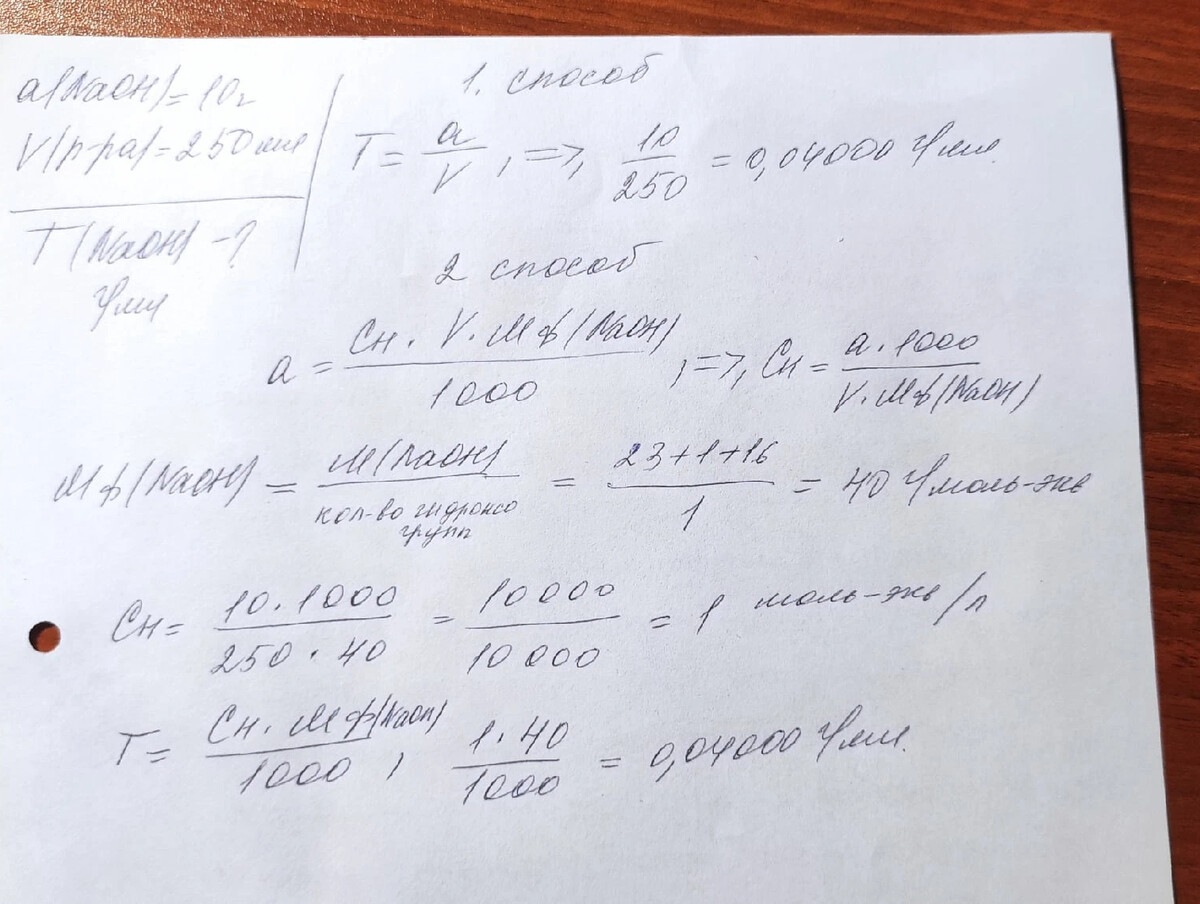 a(NaOH)=10г
V(р-ра)=250мл
T(NaOH) -?
г/мл
1. способ
T = a/V , =>, 10/250 = 0,04000 г/мл.
2 способ
a = Cн · V · Mф(NaOH)/1000 , =>, Cн = a · 1000/V · Mф(NaOH)
Mф(NaOH) = M(NaOH)/кол-во гидроксо групп = 23+1+16/1 = 40 г/моль-экв
Cн = 10 · 1000/250 · 40 = 10000/10000 = 1 моль-экв/л
T = Cн · Mф(NaOH)/1000 , 1 · 40/1000 = 0,04000 г/мл.